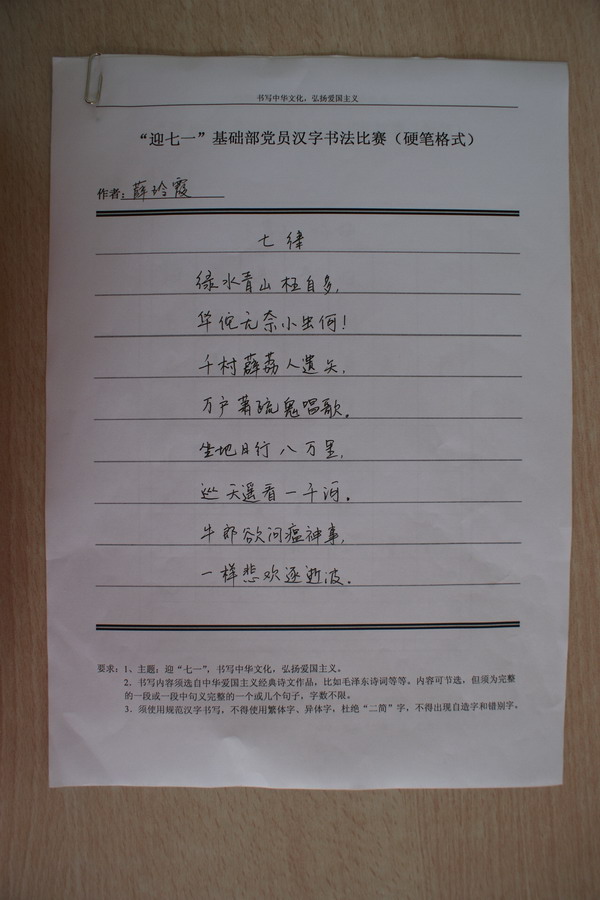 书写中华文化，弘扬爱国主义
“迎七一”基础部党员汉字书法比赛（硬笔格式）
作者：薛玲霞
七律
绿水青山枉自多，
华佗无奈小虫何！
千村薜荔人遗矢，
万户萧疏鬼唱歌。
坐地日行八万里，
巡天遥看一千河。
牛郎欲问瘟神事，
一样悲欢逐逝波。
要求：1、主题：迎“七一”，书写中华文化，弘扬爱国主义。
2．书写内容须选自中华爱国主义经典诗文作品，比如毛泽东诗词等等。内容可节选，但须为完整
的一段或一段中句义完整的一个或几个句子，字数不限。
3．须使用规范汉字书写，不得使用繁体字、异体字，杜绝“二简”字，不得出现自造字和错别字。